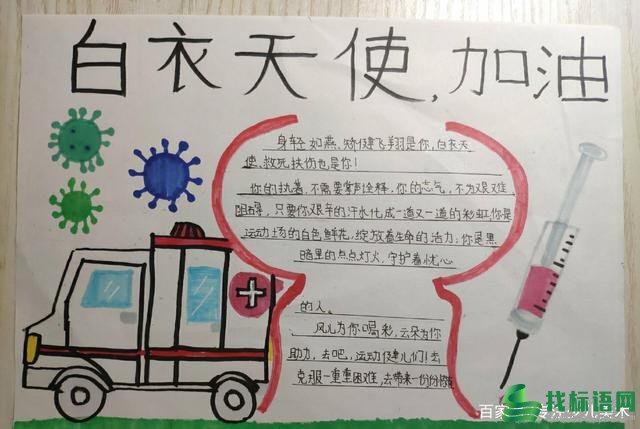 白衣天使,加油
身轻如燕、矫健飞翔是你,白衣天
使,救死扶伤也是你!
你的执着,不需要掌声诠释,你的志气,不为艰难
阻碍,只要你艰辛的汗水化成一道又一道的彩虹,你是
运动场的白色鲜花,绽放着生命的活力;你是黑
暗里的点点灯火,守护着忧心
的人。
风儿为你喝彩,云朵为你
助力,去吧,运动健儿们!去
克服一重重困难,去带来一份份
找标语网
百家